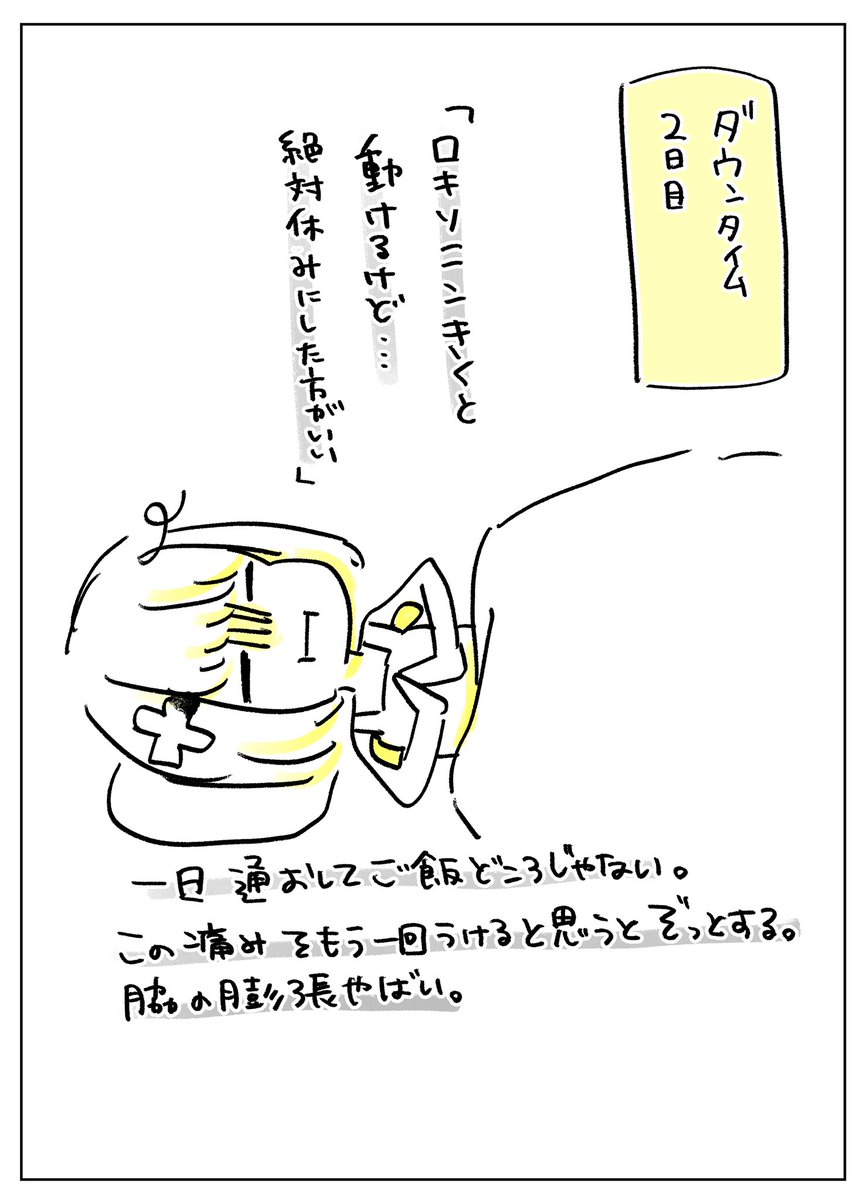 ダウンタイム
2日目
「ロキソニンきくと
動けるけど…
絶対休みにした方がいい」
一日通おしてご飯どころじゃない。
この痛みをもう一回うけると思うとぞっとする。
脇の膨張やばい。